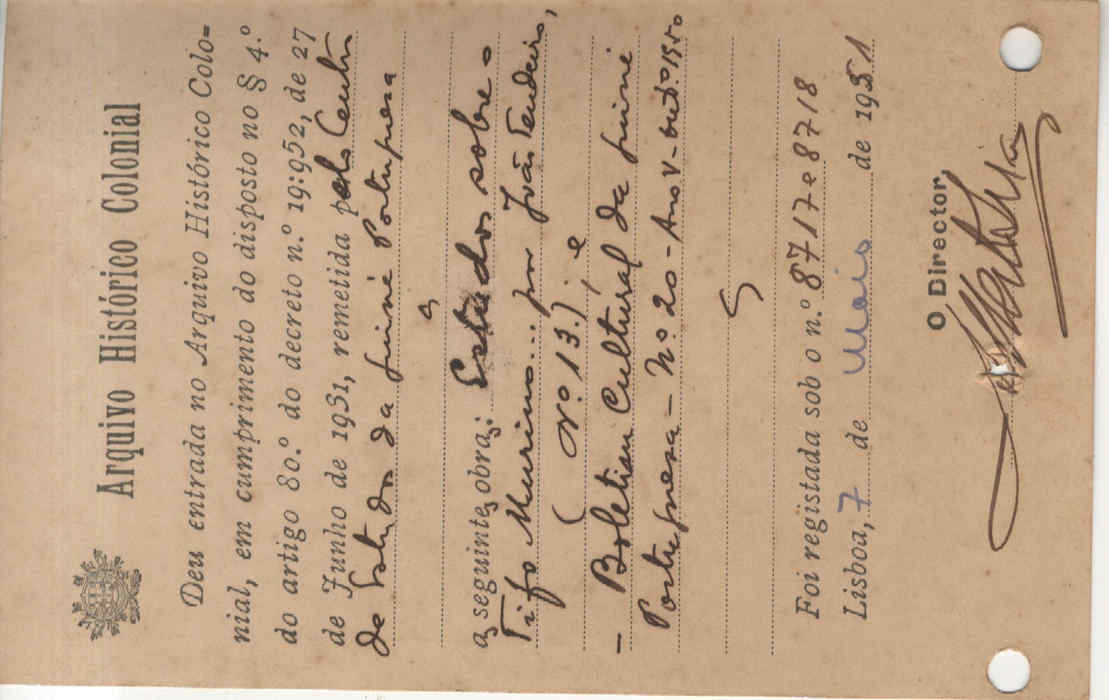 Arquivo Histórico Colonial
Deu entrada no Arquivo Histórico Colo=
nial, em cumprimento do disposto no § 4.º
do artigo 80.º do decreto n.º 19:952, de 27
de Junho de 1931, remetida pelo Centro
de Estudos da Guiné Portuguesa
as seguintes obras: Estudos sobre o
Tifo Murino... por João Tendeiro,
(Nº 13.) e
- Boletim Cultural da Guiné
Portuguesa - Nº 20 - Ano V - outº. 1950
Foi registada sob o n.º 8717 e 8718
Lisboa, 7 de Maio de 1951
O Director,